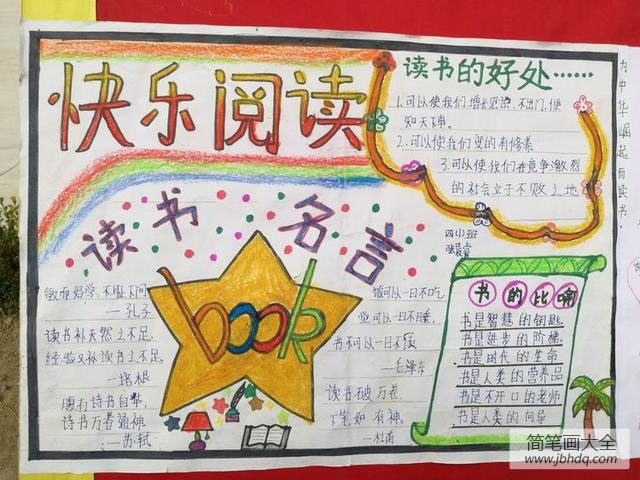 快乐阅读
读书的好处……
1.可以使我们增长见识,不出门,便
知天下事。
2.可以使我们变的有修养
3.可以使我们在竞争激烈
的社会立于不败之地
四(1)班
读书名言
敏而好学,不耻下问
—孔子
读书补天然之不足,
经验又补读书之不足.
—培根
腹有诗书自华,
诗书万卷通神
—苏轼
book
饭可以一日不吃
觉可以一日不睡,
书不可以一日不读
—毛泽东
读书破万卷
下笔如有神。
—杜甫
书的比喻
书是智慧的钥匙
书是进步的阶梯.
书是时代的生命
书是人类的营养品
书是不开口的老师
书是人类的向导
为中华崛起而读书
简笔画大全
www.jbhdq.com